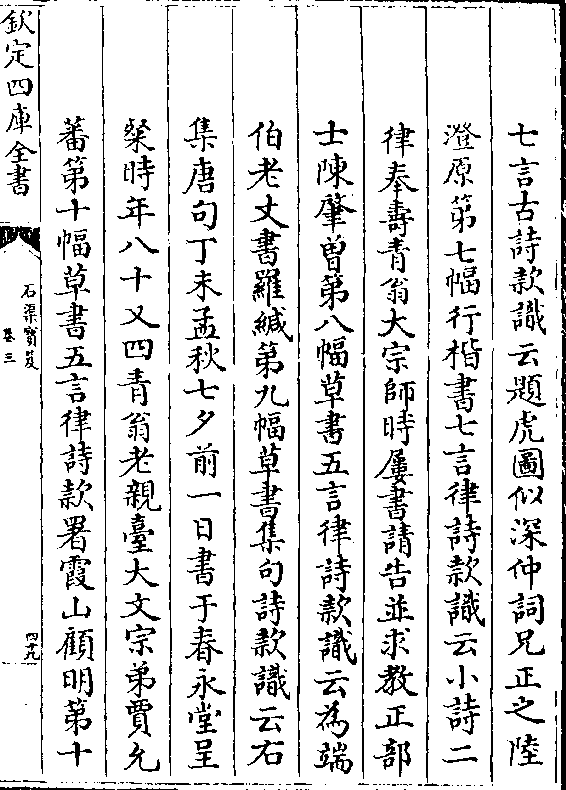 七言古詩款識云題虎圖似深仲詞兄正之陸
澄原第七幅行楷書七言律詩款識云小詩二
律奉壽青翁大宗師時屢書請告並求教正部
士陳肇曽第八幅草書五言律詩款識云為端
伯老丈書羅緘第九幅草書集句詩款識云右
集唐句丁未孟秋七夕前一日書于春永堂呈
粲時年八十又四青翁老親臺大文宗弟賈允
蕃第十幅草書五言律詩款署霞山顧明第十
欽定四庫全書
石渠寳笈
卷三